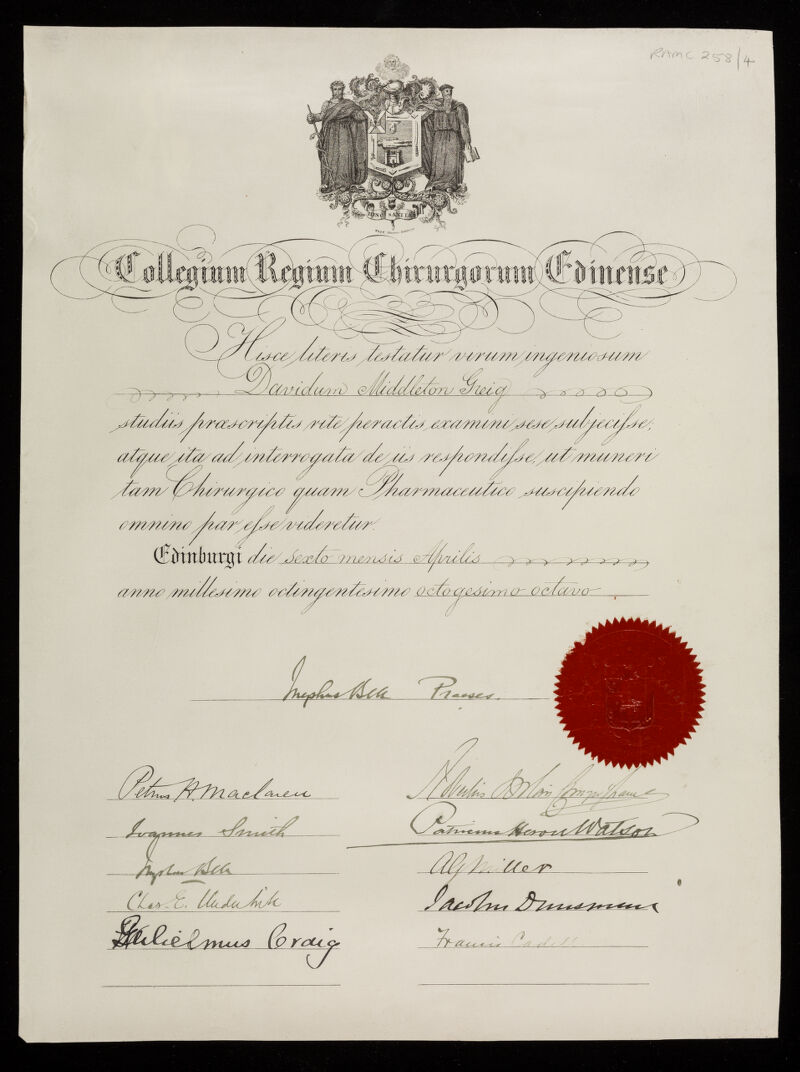 RAMC 258/4
Collegium Regium Chirurgorum Edinense
Hisce literis testatur virum ingeniosum
Davidum Middleton Greig
studiis præscriptis rite peractis examini sese subjecisse;
atque ita ad interrogata de iis respondisse, ut muneri
tam Chirurgico quam Pharmaceutico suscipiendo
omnino par esse videretur.
Edinburgi die sexto mensis Aprilis
anno millesimo octingentesimo octogesimo octavo
Josephus Bell Praeses.
Petrus H. Maclaren
Ioannes Smith
Patricius Heron Watson
Josephus Bell
A G Miller
Chas. E. Underhill
Jacobus Dunsmure
Gulielmus Craig
Francis Cadell